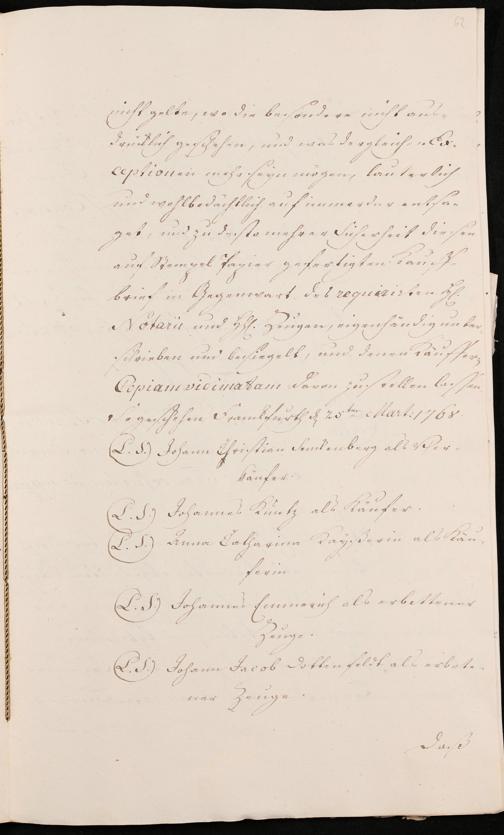 62
nicht gelte, wo die besondere nicht aus-
drücklich geschehen, und was dergleich. Ex-
ceptionen mehr seyn mögen, lauterlich
und wohlbedächtlich auf immerdar entsa-
get, und zu desto mehrer Sicherheit diesen
auf Stempel Papier gefertigten Kauff-
brief in Gegenwart des requirirten H.
Notarii und H. Zeugen, eigenhändig unter-
schrieben und besiegelt, und denen Käuffern
Copiam vidimatam davon zustellen lassen
So geschehen Franckfurth d. 25ten Mart. 1768
(L. S.) Johann Christian Senckenberg als Ver-
käufer.
(L. S.) Johannes Kuntz als Käufer.
(L. S.) Anna Catharina Kayßerin als Käu-
ferin
(L. S.) Johannes Emmerich als erbettener
Zeuge.
(L. S.) Johann Jacob Dottenfeldt als erbete-
ner Zeuge.
Daß